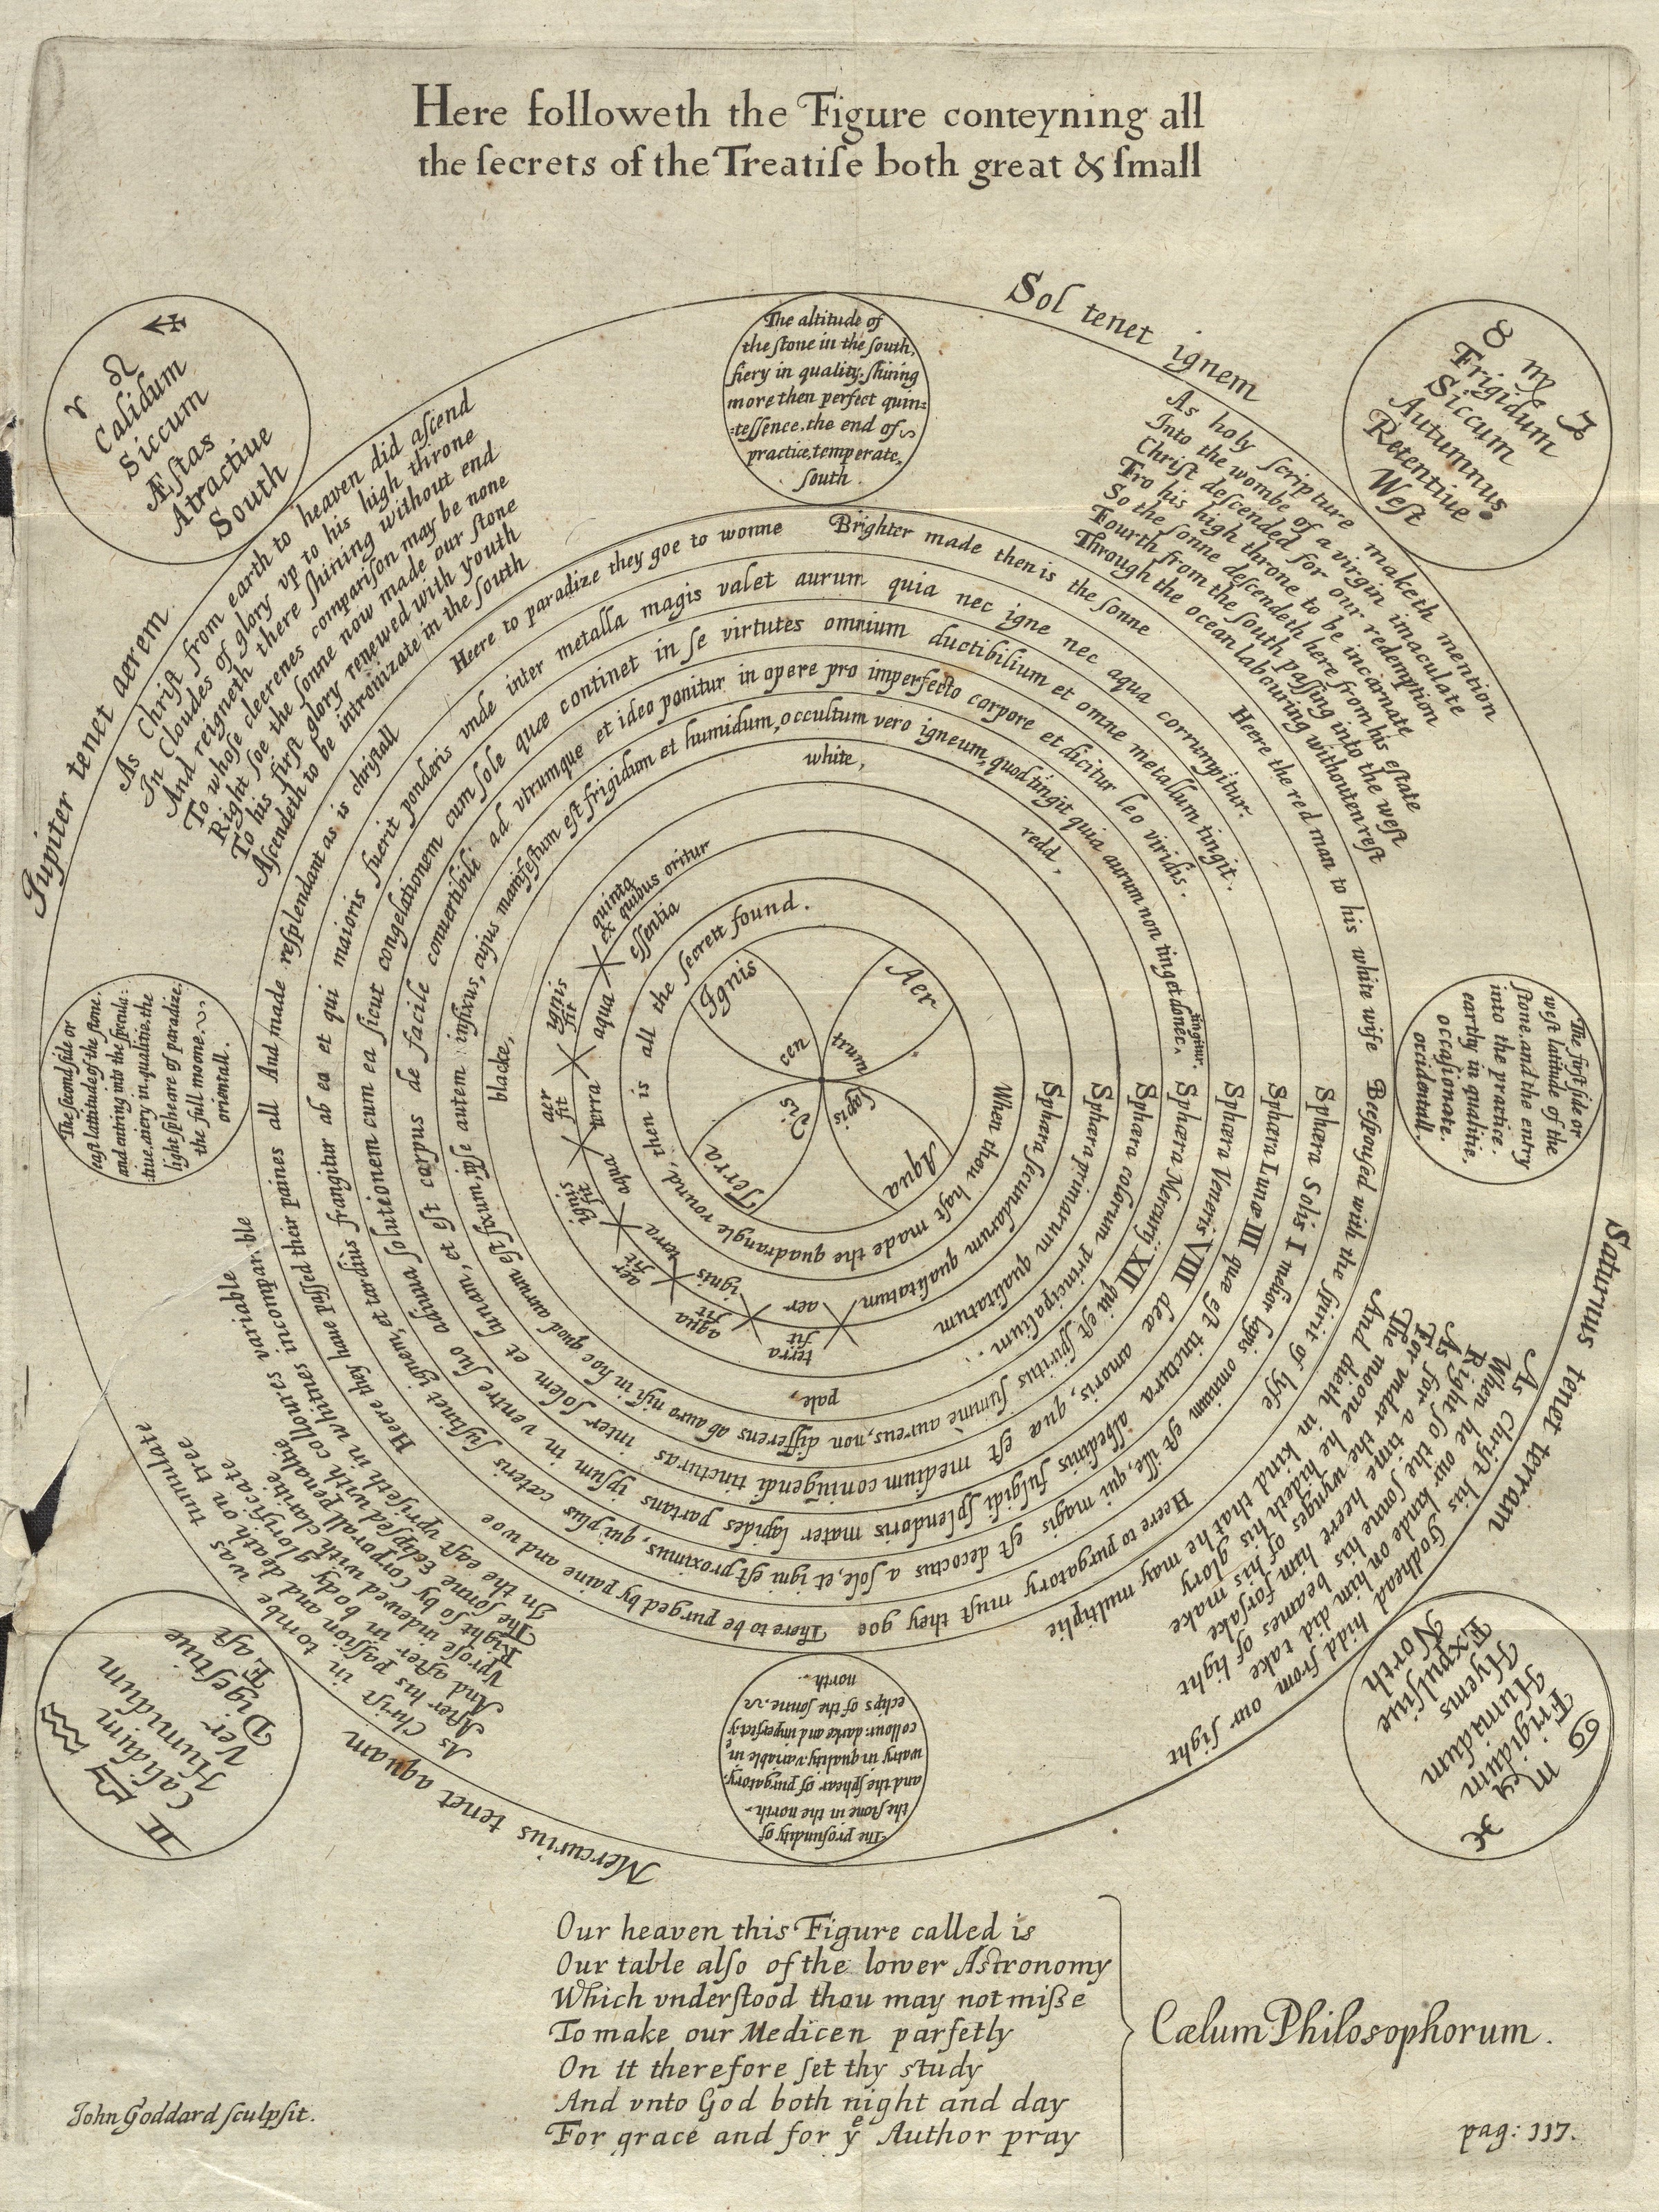 Here followeth the Figure conteyning all
the ſecrets of the Treatiſe both great & ſmall
♈ ♌ ♐
Calidum
Siccum
Æſtas
Atractiue
South
The altitude of
the ſtone in the ſouth,
fiery in quality, ſhining
more then perfect quin=
=teſſence, the end of
practice, temperate,
ſouth.
♉ ♍ ♑
Frigidum
Siccum
Autumnus
Retentiue
Weſt
Sol tenet ignem
As holy ſcripture maketh mention
Into the wombe of a virgin imaculate
Chriſt deſcended for our redemption
Fro his high throne to be incarnate
So the ſonne deſcendeth here from his eſtate
Fourth from the ſouth paſſing into the weſt
Through the ocean labouring withouten reſt
The firſt ſide or
weſt latitude of the
ſtone, and the entry
into the practice.
earthy in qualitie,
occaſionate.
occidentall.
Saturnus tenet terram
As Chriſt his Godhead hidd from our ſight
When he our kinde on him did take
Right ſo the ſonne his beames of light
As for a time heere him forſake
For vnder the wynges of his make
The moone he hideth his glory
And dieth in kind that he may multiplie
♋ ♏ ♓
Frigidum
Humidum
Hyems
Expulſiue
North
The profundity of
the ſtone in the north
and the ſphear of purgatory,
watry in quality, variable in
collour: darke and imperfect: yͤ
eclips of the ſonne.
north.
Mercurius tenet aquam
As Chriſt in tombe was tumulate
After his paſſion and death on tree
And after in body glorificate
Vproſe indewed with claritie
Right ſo by corporall penaltie
The ſonne Eclipſed with collours variable
In the eaſt vpriſeth in whitnes incomparable
♊ ♎ ♒
Calidum
Humidum
Ver
Digeſtiue
Eaſt
The ſecond ſide or
eaſt lattitude of the ſtone.
and entring into the ſpecula=
tiue. aiery in qualitie. the
light ſpheare of paradize.
the full moone.
orientall.
Jupiter tenet aerem.
As Chriſt from earth to heaven did aſcend
In Cloudes of glory vp to his high throne
And reigneth there ſhining without end
To whoſe cleerenes compariſon may be none
Right ſoe the ſonne now made our ſtone
To his firſt glory renewed with youth
Aſcendeth to be intronizate in the ſouth
Here the red man to his white wife
Beeſpouſed with the ſpirit of lyfe
Heere to purgatory muſt they goe
There to be purged by paine and woe
Heere they have paſſed their paines all
And made reſplendant as is chriſtall
Here to paradize they goe to wonne
Brighter made then is the ſonne
Sphæra Solis I melior lapis omnium eſt ille, qui magis eſt decoctus a ſole, et igni eſt proximus, qui plus cæteris ſuſtinet ignem, et tardiùs frangitur ab ea et qui maioris fuerit ponderis vnde inter metalla magis valet aurum quia nec igne nec aqua corrumpitur.
Sphæra Lunæ III quæ eſt tinctura albedinis fulgidi ſplendoris mater lapides portans ipſum in ventre ſuo adiuua ſolutionem cum ea ſicut congelationem cum ſole quæ continet in ſe virtutes omnium ductibilium et omne metallum tingit.
Sphæra Veneris VIII dea amoris, quæ eſt medium coniugendi tincturas inter ſolem et lunam, et eſt corpus de facile convertibili ad vtrumque et ideo ponitur in opere pro imperfecto corpore et dicitur leo viridis.
Sphæra Mercurij XII qui eſt ſpiritus ſummè aureus, non differens ab auro niſi in hoc quod aurum eſt fixum, ipſe autem infixus, cujus manifeſtum eſt frigidum et humidum, occultum vero igneum, quod tingit quia aurum non tinget donec tingitur.
Sphæra colorum principalium.
pale,
blacke,
white,
redd,
Sphæra primarum qualitatum
Sphæra ſecundarum qualitatum
terra fit aer
aqua fit ignis
aer fit terra
ignis fit aqua
aer fit terra
ignis fit aqua
quinta eſſentia
ex quibus oritur
When thou haſt made the quadrangle round, then is all the ſecrett found.
Ignis
Aer
Aqua
Terra
cen
trum
lapis
dis
Our heaven this Figure called is
Our table alſo of the lower Aſtronomy
Which vnderſtood thou may not miſſe
To make our Medicen parfetly
On it therefore ſet thy study
And vnto God both night and day
For grace and for yͤ Author pray
Cælum Philosophorum.
John Goddard ſculpſit.
pag: 117.